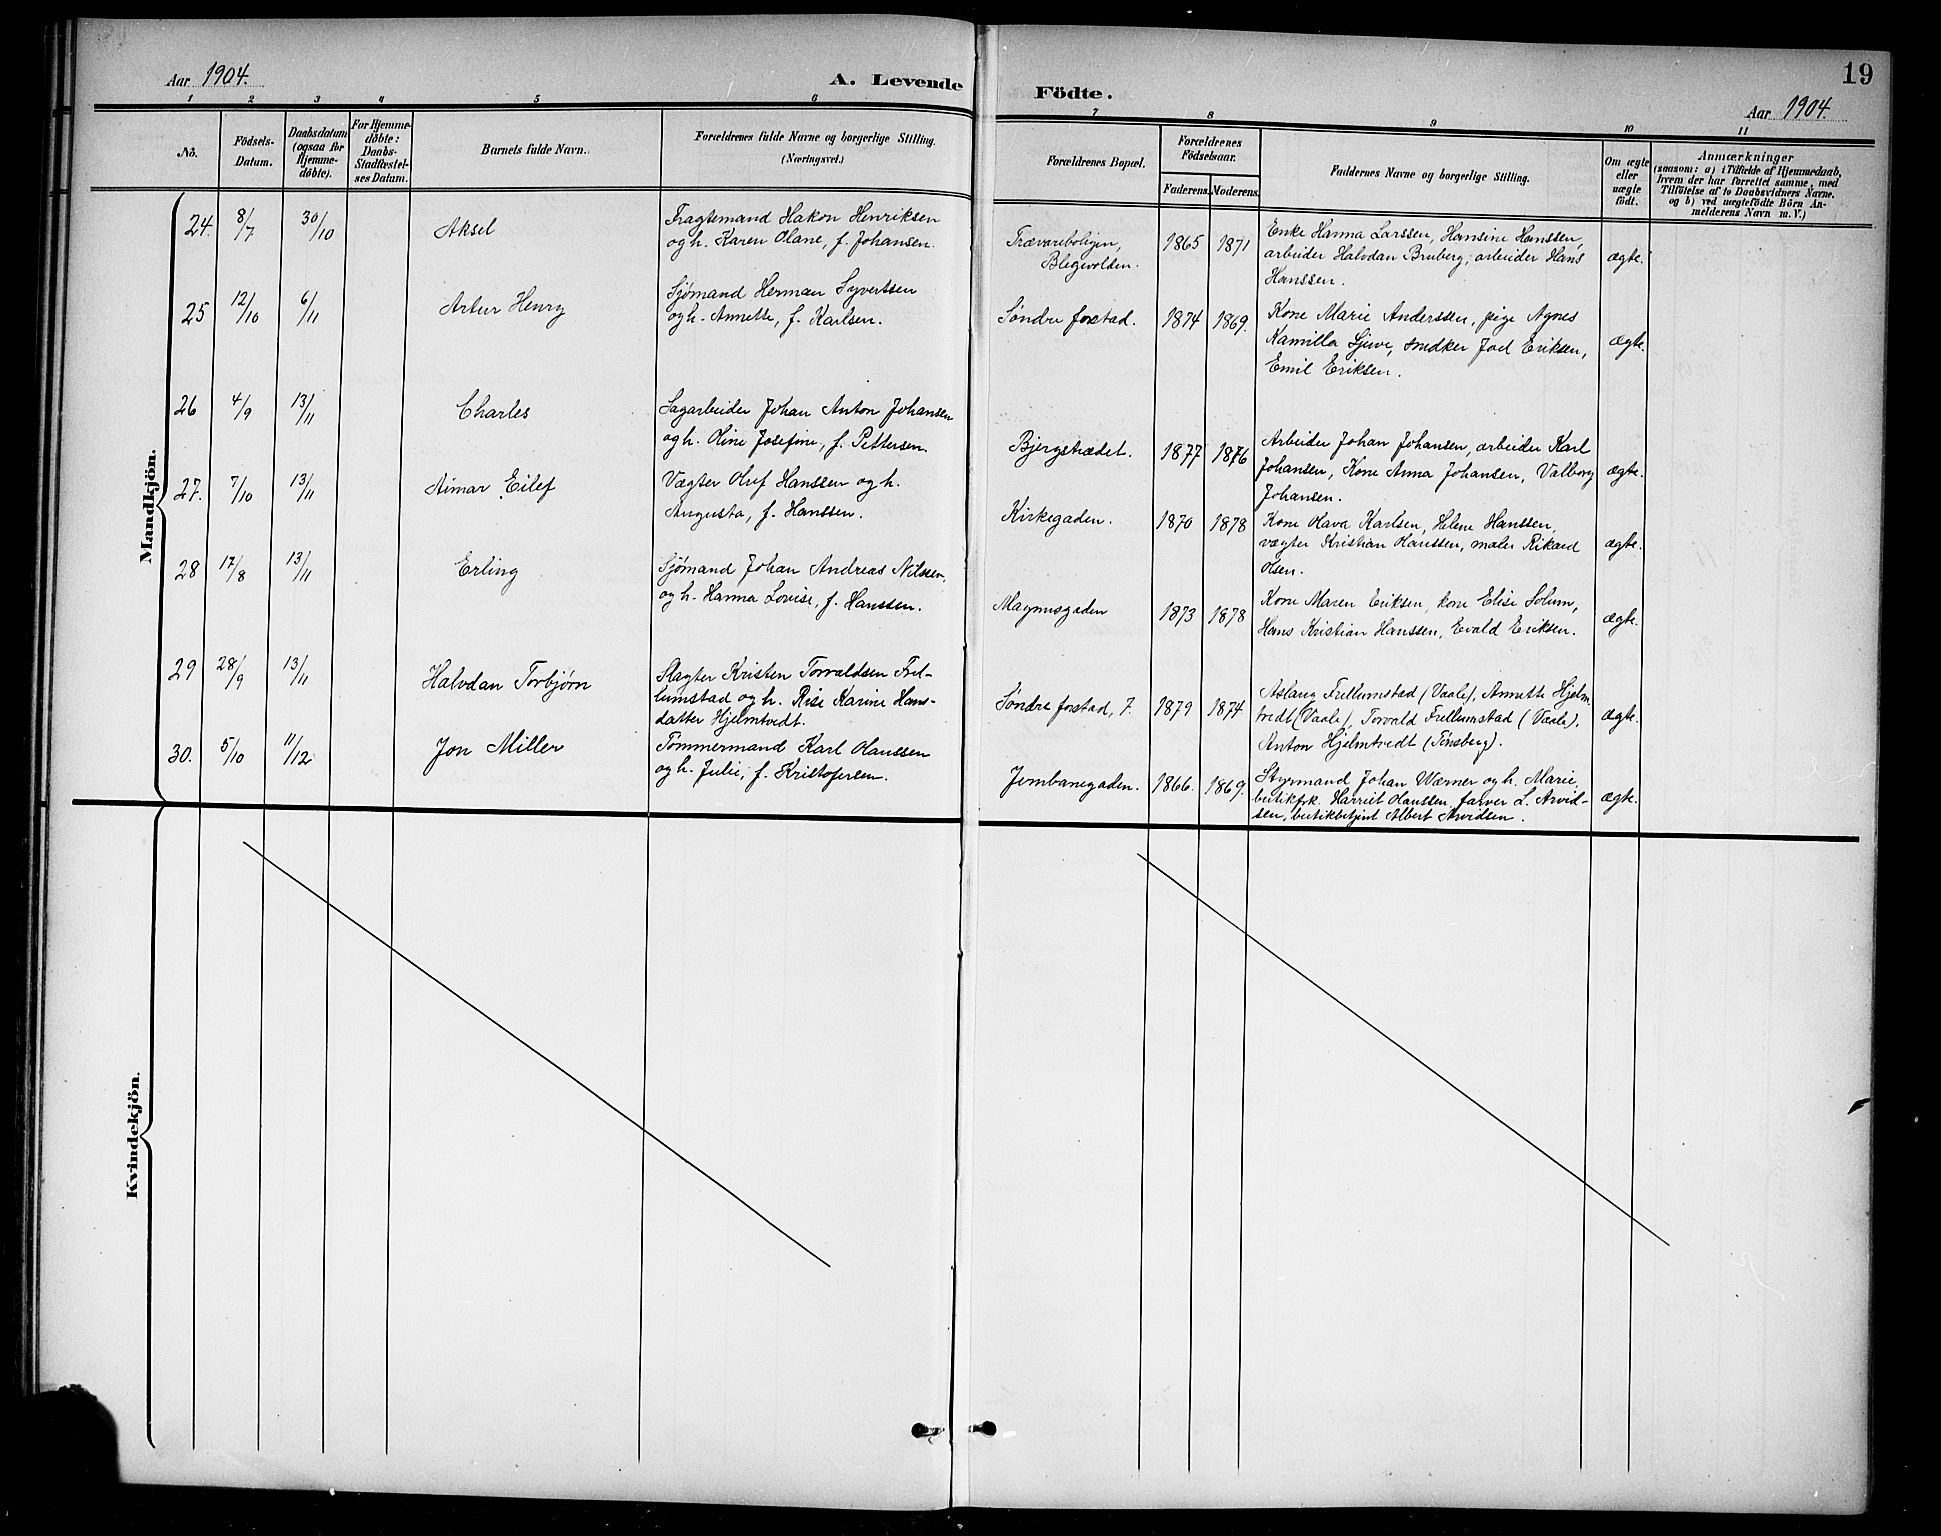 19
Aar 1904.
A. Levende Födte.
Aar 1904.
1 2 3 4 5 6 7 8 9 10 11
No.
Födsels-Datum.
Daabsdatum (ogsaa for Hjemme-döbte).
For Hjemme-döbte: Daabs-Stadfæstel-ses Datum.
Barnets fulde Navn.
Forældrenes fulde Navne og borgerlige Stilling. (Næringsvei.)
Forældrenes Bopæl.
Forældrenes Födselsaar.
Faderens. Moderens.
Faddernes Navne og borgerlige Stilling.
Om ægte eller uægte födt.
Anmærkninger
(saasom: a) i Tilfælde af Hjemmedaab,
hvem der har forrettet samme, med
Tilföielse af to Daabsvidners Navne.
og b) ved uægtefödte Börn An-
melderens Navn m. V.)
Mandkjön.
24. 8/7 30/10 Aksel
Fragtemand Hakon Henriksen
og h. Karen Olane, f. Johansen.
Trævareboligen,
Blegevolden.
1865 1871
Enke Hanna Larssen, Hansine Hanssen,
arbeider Halvdan Bruberg, arbeider Hans
Hanssen.
ægte.
25 12/10 6/11 Artur Henry
Sjømand Herman Syvertsen
og h. Annette, f. Karlsen.
Søndre forstad. 1874 1869.
Kone Marie Anderssen, pige Agnes
Kamilla Gjeve, snedker Joel Eriksen,
Emil Eriksen.
ægte.
26 4/9 13/11 Charles
Sagarbeider Johan Anton Johansen
og h. Oline Josefine, f. Pettersen
Bjergstrædet. 1877 1876
Arbeider Johan Johansen, arbeider Karl
Johansen, Kone Anna Johansen, Valborg
Johansen.
ægte.
27. 7/10 13/11 Aimar Eilef
Vægter Oluf Hanssen og h.
Augusta, f. Hanssen.
Kirkegaden. 1870 1878
Kone Olava Karlsen, Helene Hanssen,
vægter Kristian Hanssen, maler Rikard
Olsen.
ægte.
28 17/8 13/11 Erling
Sjømand Johan Andreas Nilssen,
og h. Hanna Lovise, f. Hanssen.
Magnusgaden 1873 1878
Kone Maren Eriksen, kone Elise Solum,
Hans Kristian Hanssen, Evald Eriksen.
ægte.
29 28/9 13/11 Halvdan Torbjørn
Slagter Kristen Torvaldsen Frel-
lumstad og h. Rise Karine Hans-
datter Hjelmtvedt.
Søndre forstad, 7. 1879 1874
Aslaug Frellumstad (Vaale), Annette Hjelm
tvedt (Vaale), Torvald Frellumstad (Vaale),
Anton Hjelmtvedt (Tønsberg).
ægte.
30. 5/10 11/12 Jon Miller
Tømmermand Karl Olaussen
og h. Julie, f. Kristofersen.
Jernbanegaden. 1866. 1869.
Styrmand Johan Wærner og h. Marie,
butikfrk. Harriet Olaussen, farver L. Arvid-
sen, butikbetjent Albert Arvidsen.
ægte.
Kvindekjön.